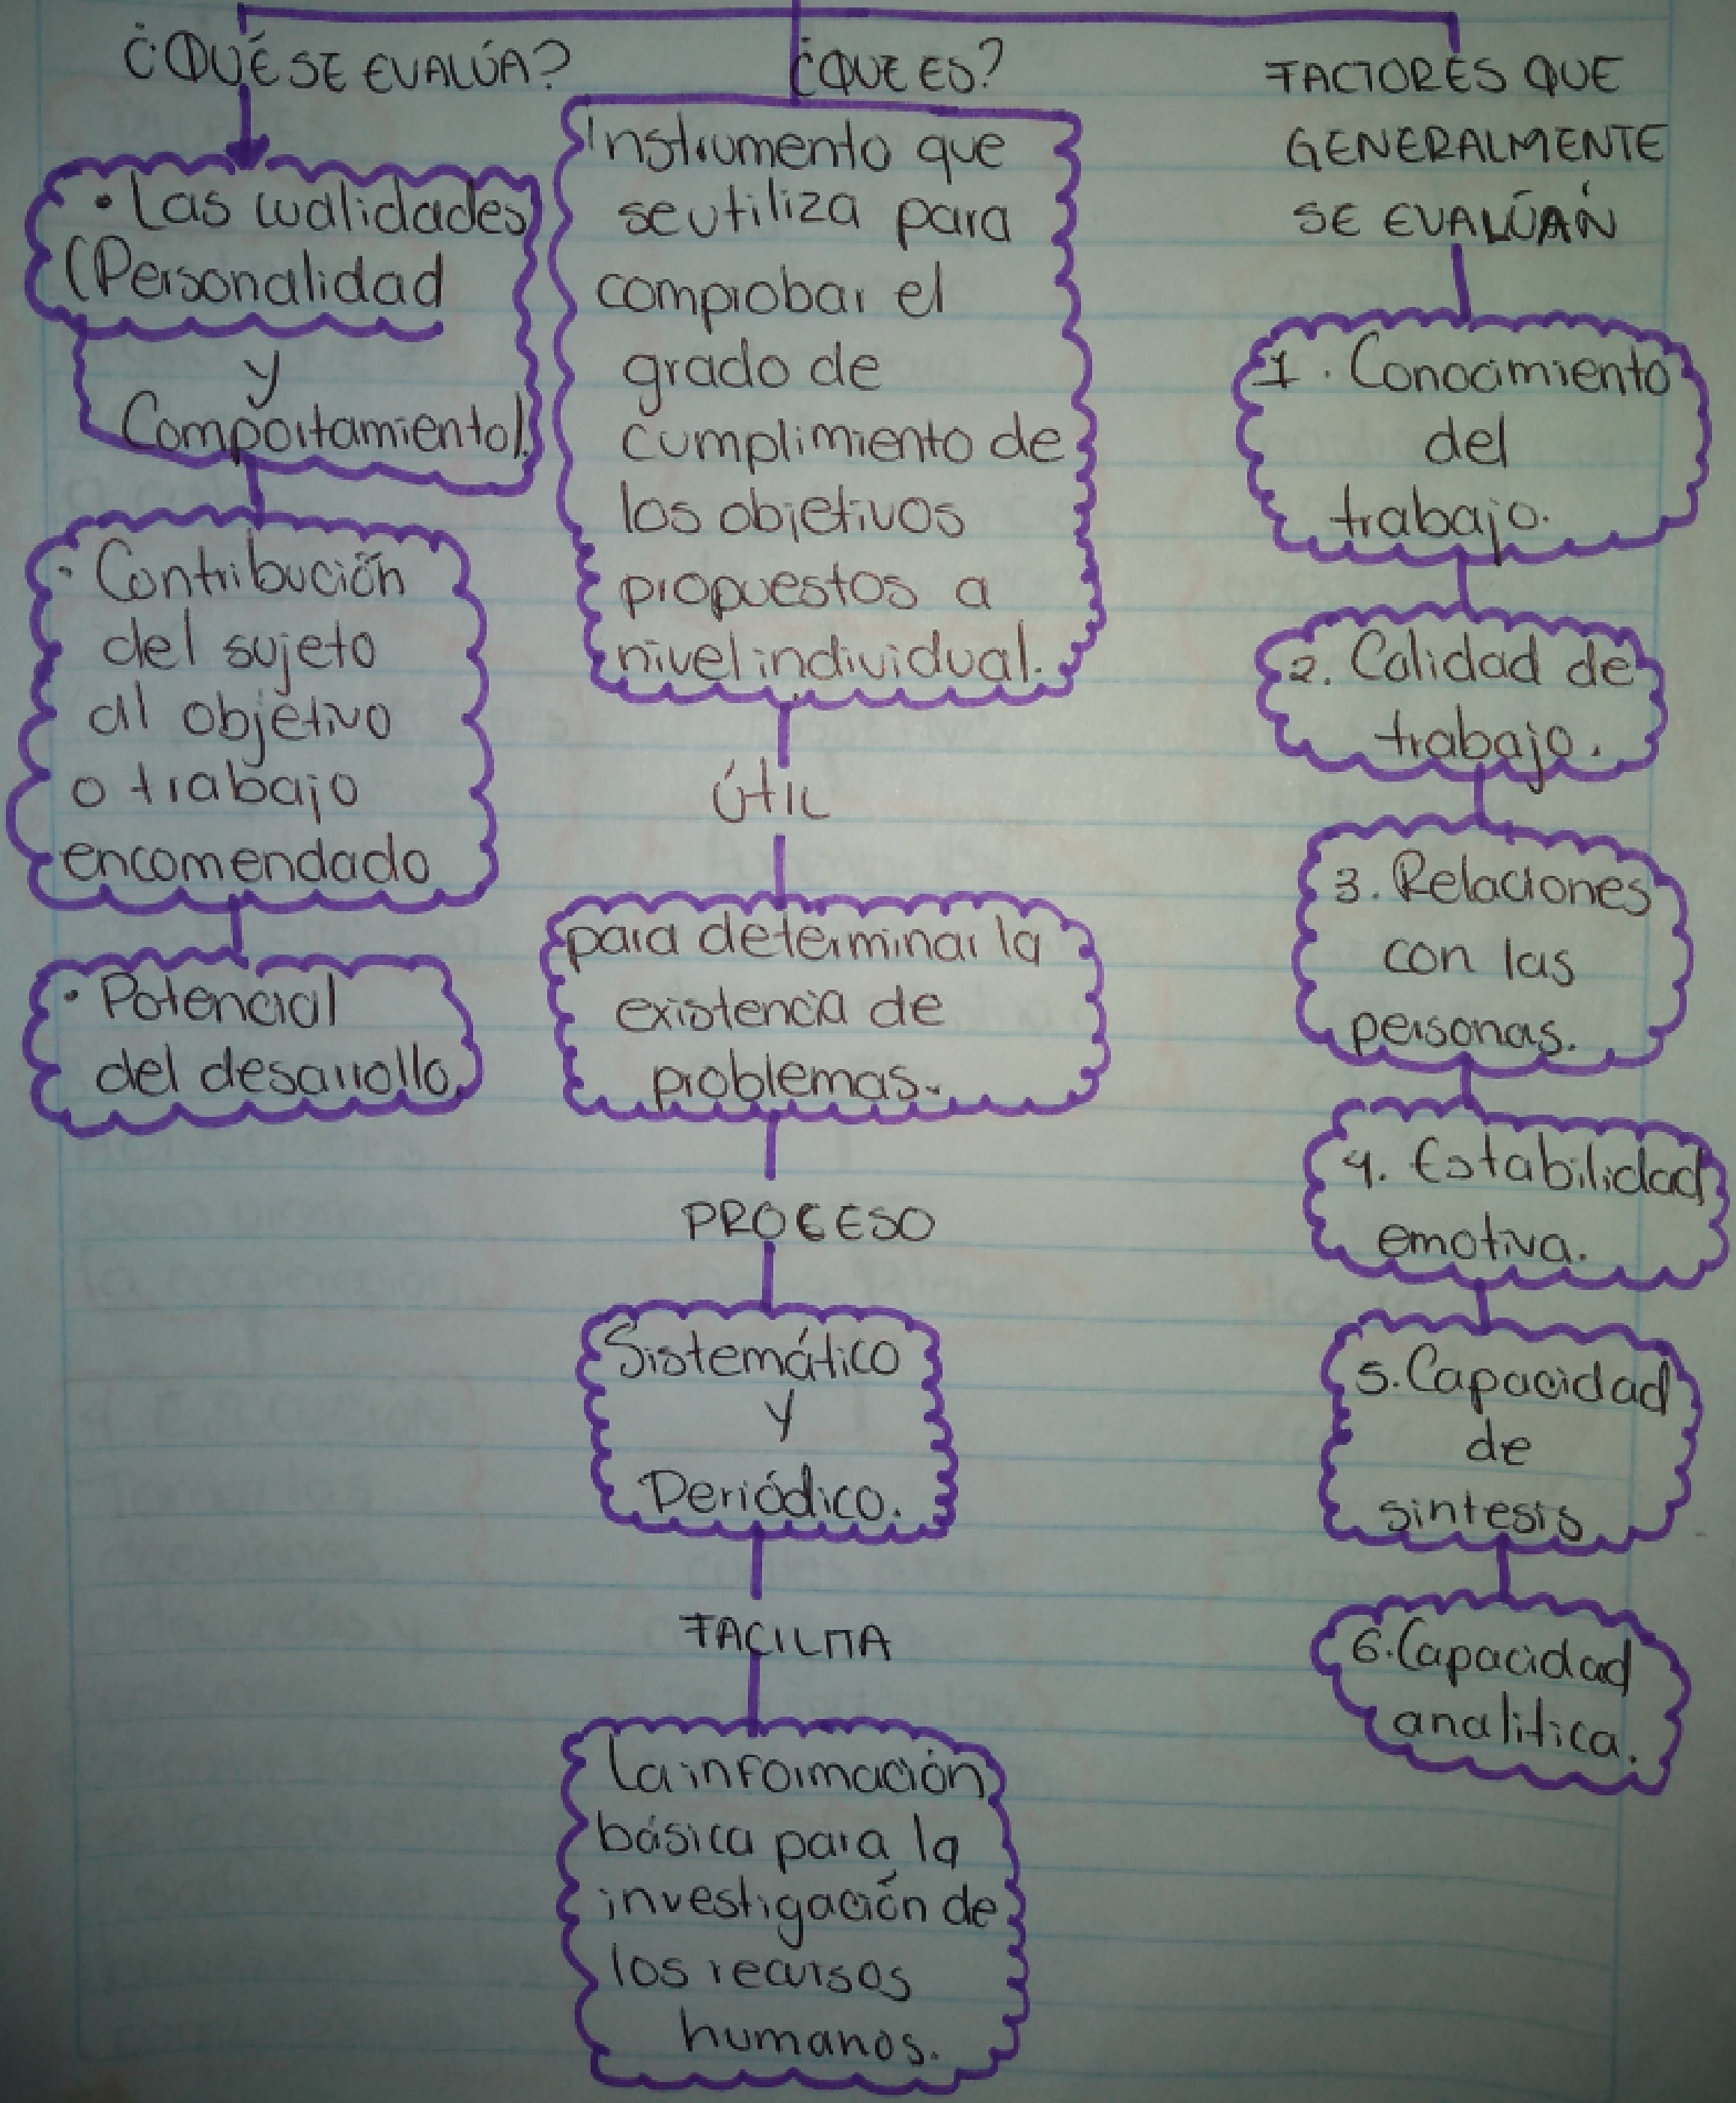 ¿QUÉ SE EVALÚA?
• Las cualidades
(Personalidad
y
Comportamiento).
• Contribución
del sujeto
al objetivo
o trabajo
encomendado
• Potencial
del desarrollo.
¿QUE ES?
Instrumento que
se utiliza para
comprobar el
grado de
cumplimiento de
los objetivos
propuestos a
nivel individual.
ÚTIL
para determinar la
existencia de
problemas.
PROCESO
Sistemático
y
Periódico.
FACILITA
La información
básica para la
investigación de
los recursos
humanos.
FACTORES QUE
GENERALMENTE
SE EVALÚAN
1. Conocimiento
del
trabajo.
2. Calidad de
trabajo.
3. Relaciones
con las
personas.
4. Estabilidad
emotiva.
5. Capacidad
de
sintesis
6. Capacidad
analitica.